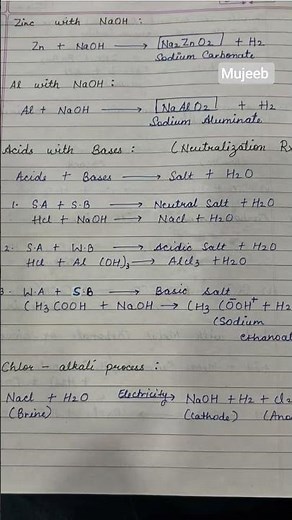 Zinc with NaOH :
Zn + NaOH → [Na2ZnO2] + H2
Sodium Carbonate
Mujeeb
Al with NaOH :
Al + NaOH → [NaAlO2] + H2
Sodium Aluminate
Acids with Bases : (Neutralization Rx
Acids + Bases → Salt + H2O
1. S.A + S.B → Neutral Salt + H2O
Hcl + NaOH → Nacl + H2O
2. S.A + W.B → Acidic Salt + H2O
Hcl + Al (OH)3 → Alcl3 + H2O
3. W.A + S.B → Basic Salt
CH3COOH + NaOH → CH3 COOH + H2
(Sodium
ethanoat
Chlor - alkali process :
Nacl + H2O Electricity→ NaOH + H2 + Cl2
(Brine) (Cathode) (Ano